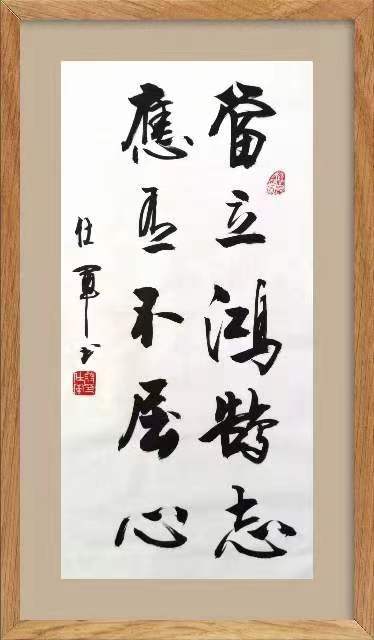 當立鴻鵠志
應有不屈心
任軍书